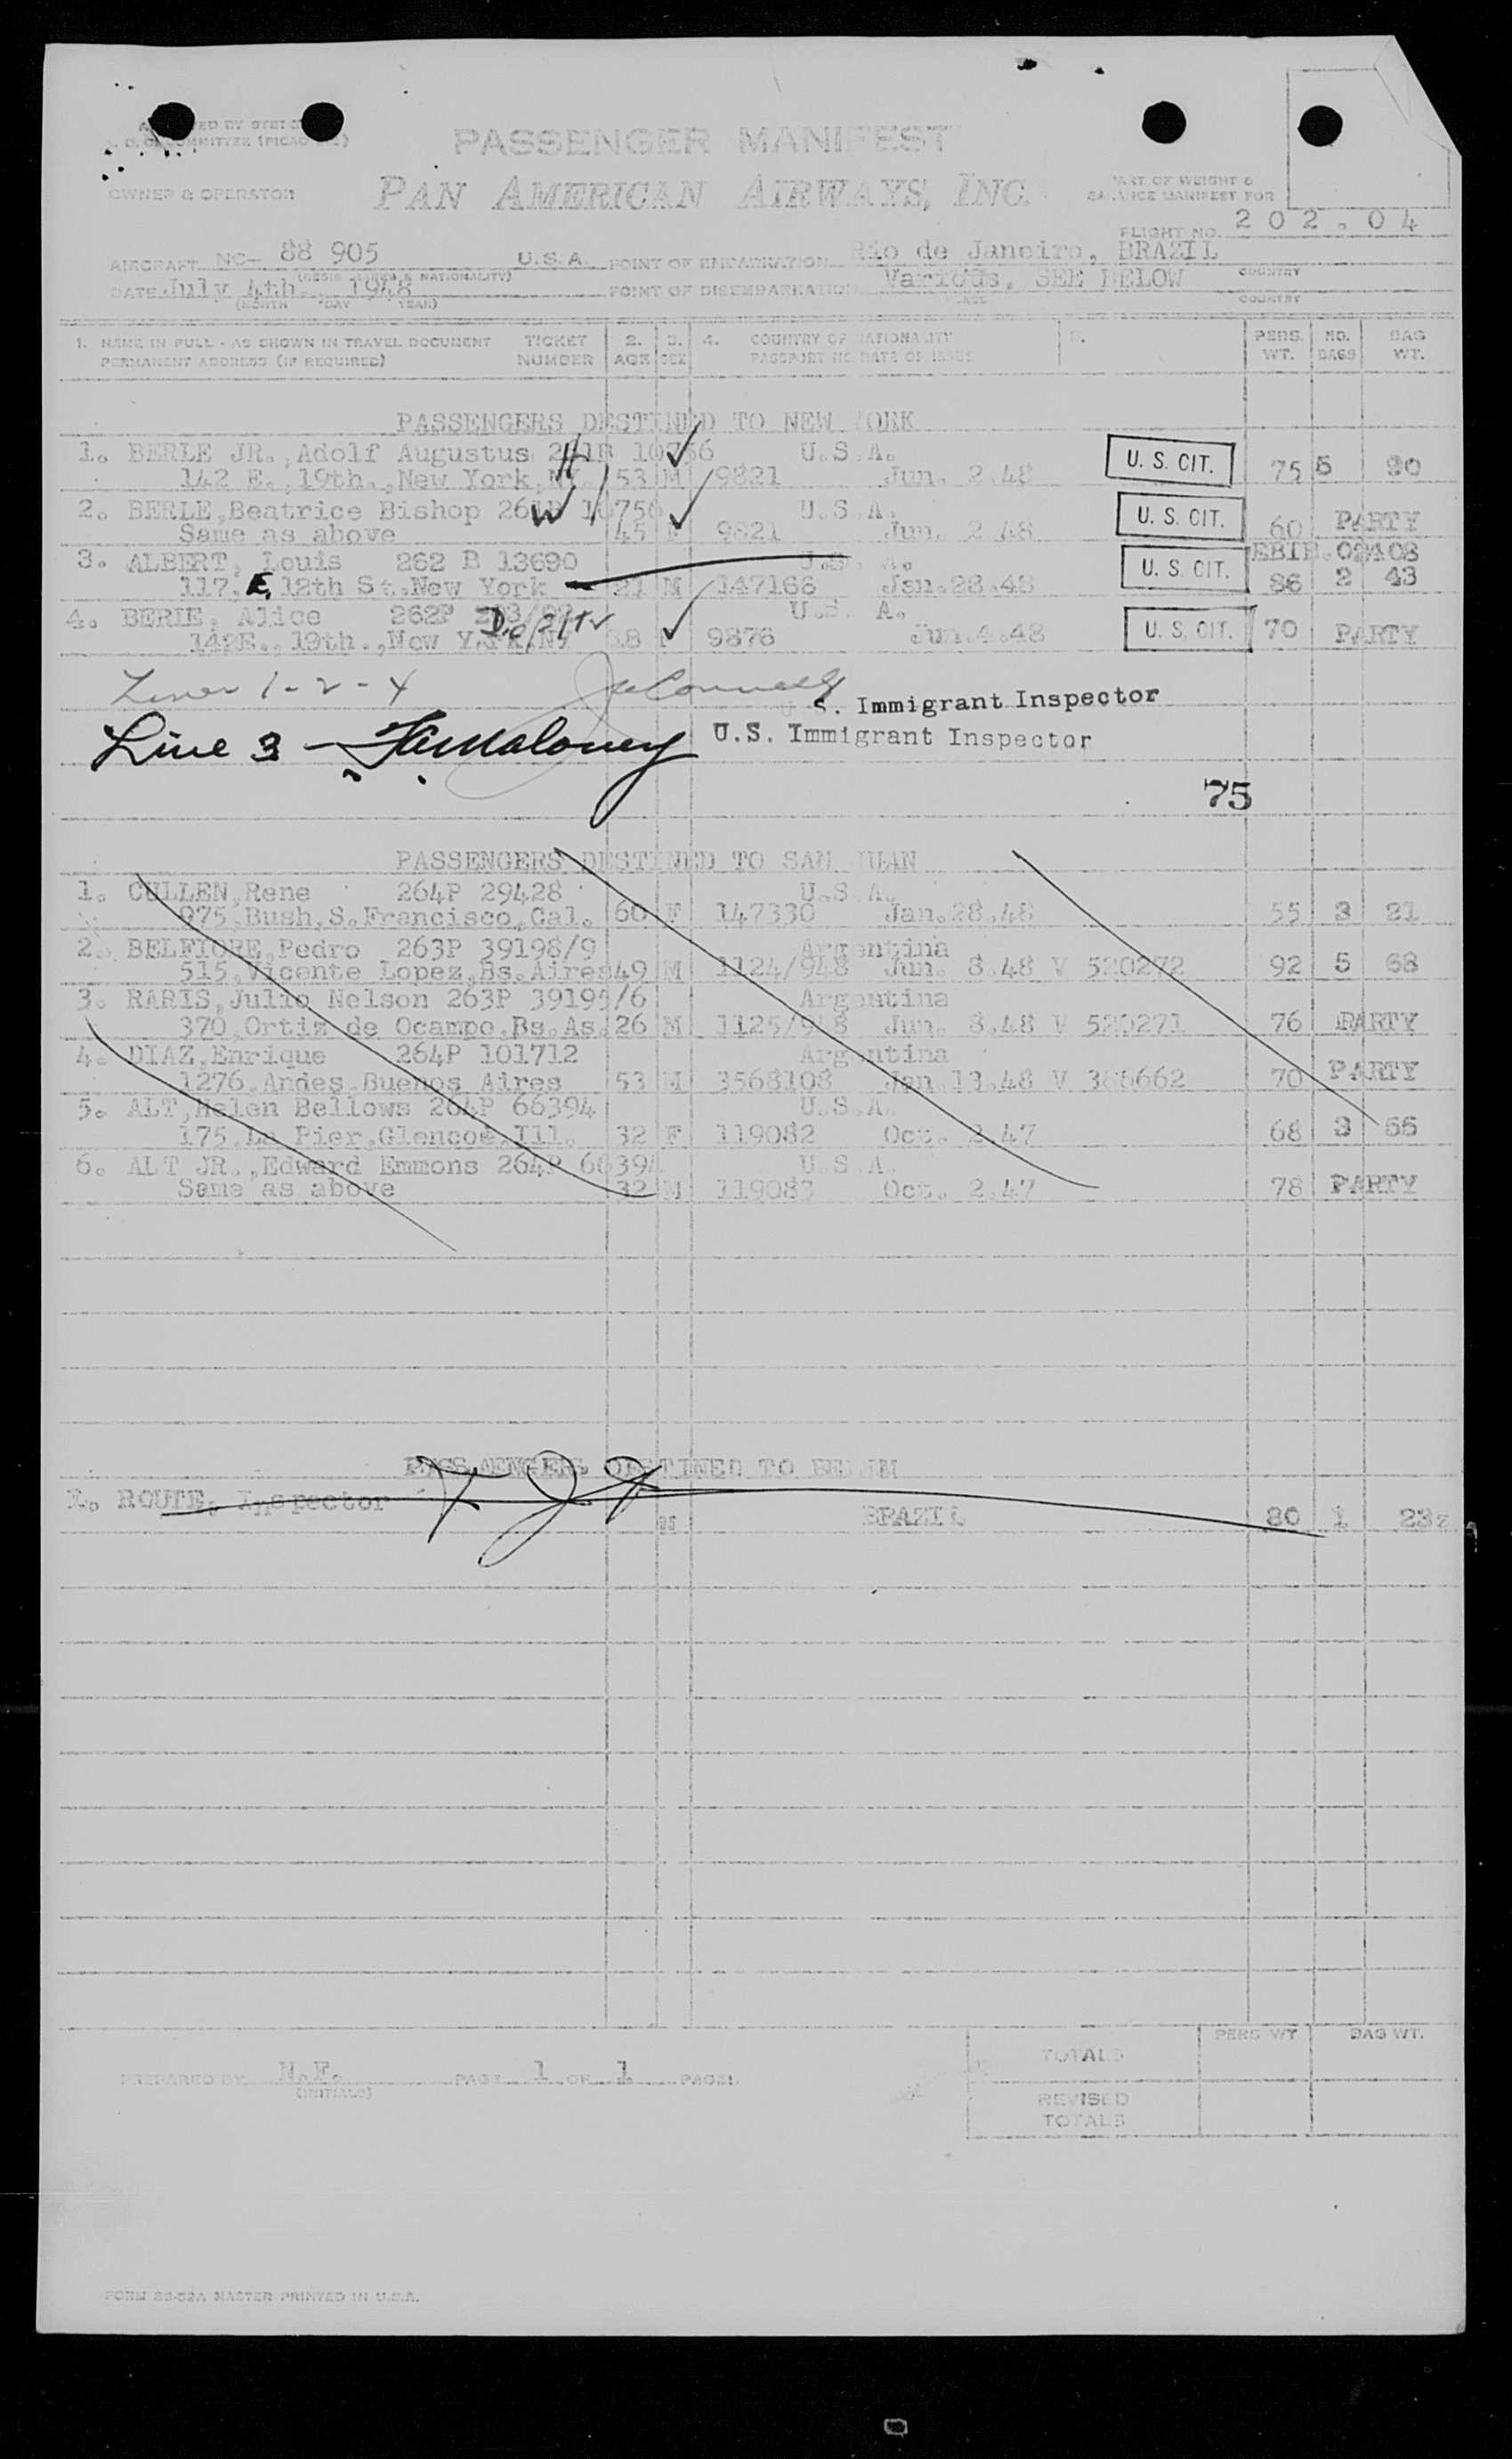 PASSENGER MANIFEST
OWNER & OPERATOR PAN AMERICAN AIRWAYS, INC. PART OF WEIGHT & BALANCE MANIFEST FOR
FLIGHT NO. 202.04
AIRCRAFT NC- 88 905 U.S.A. POINT OF EMBARKATION Rio de Janeiro, BRAZIL
COUNTRY
DATE July 4th., 1948 POINT OF DISEMBARKATION Various, SEE BELOW
(MONTH DAY YEAR) PLACE COUNTRY
1. NAME IN FULL - AS SHOWN IN TRAVEL DOCUMENT TICKET 2. 3. 4. COUNTRY OF NATIONALITY 5. PERS. NO. BAG
PERMANENT ADDRESS (IF REQUIRED) NUMBER AGE SEX PASSPORT NO DATE OF ISSUE WT. BAGS WT.
PASSENGERS DESTINED TO NEW YORK
1. BERLE JR., Adolf Augustus U.S.A. U. S. CIT.
142 E., 19th., New York, NY. 53 M 9821 Jun. 2.48 75 5 90
2. BERLE, Beatrice Bishop U.S.A. U. S. CIT.
Same as above 45 F 9821 Jun. 2.48 60 PARTY
3. ALBERT, Louis 262 B 13690 U.S.A. U. S. CIT.
117. E, 12th St. New York 21 M 147166 Jan.28.48 86 2 43
4. BERLE, Alice 262P U.S.A. U. S. CIT.
142E., 19th., New York, NY 18 F 9876 Jun.4.48 70 PARTY
Lines 1-2-4 U.S. Immigrant Inspector
Line 3 - Maloney U.S. Immigrant Inspector
75
PASSENGERS DESTINED TO SAN JUAN
1. CULLEN, Rene 264P 29428 U.S.A.
975, Bush, S. Francisco, Cal. 60 F 147330 Jan.28.48 55 3 21
2. BELFIORE, Pedro 263P 39198/9 Argentina
515, Vicente Lopez, Bs. Aires 49 M 1124/948 Jun. 8.48 V 520272 92 5 68
3. RARIS, Julio Nelson 263P 39195/6 Argentina
370, Ortiz de Ocampo, Bs. As. 26 M 1125/948 Jun. 8.48 V 520271 76 PARTY
4. DIAZ, Enrique 264P 101712 Argentina
1276, Andes, Buenos Aires 53 M 3568108 Jan.13.48 V 70 PARTY
5. ALT, Helen Bellows 264P 66394 U.S.A.
175, La Pier, Glencoe, Ill. 32 F 119082 Oct. 2.47 68 3 66
6. ALT JR., Edward Emmons 264P U.S.A.
Same as above 32 M 119083 Oct. 2.47 78 PARTY
PASSENGERS DESTINED TO BELEM
1. ROUTE, Inspector
BRAZIL 80 1 23
PERS WT BAG WT.
TOTALS
PREPARED BY N.F. PAGE 1 OF 1 PAGES
(INITIALS)
REVISED
TOTALS
FORM MASTER PRINTED IN U.S.A.